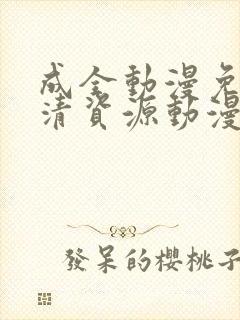 成全動漫免
清資源動漫
發呆的櫻桃子